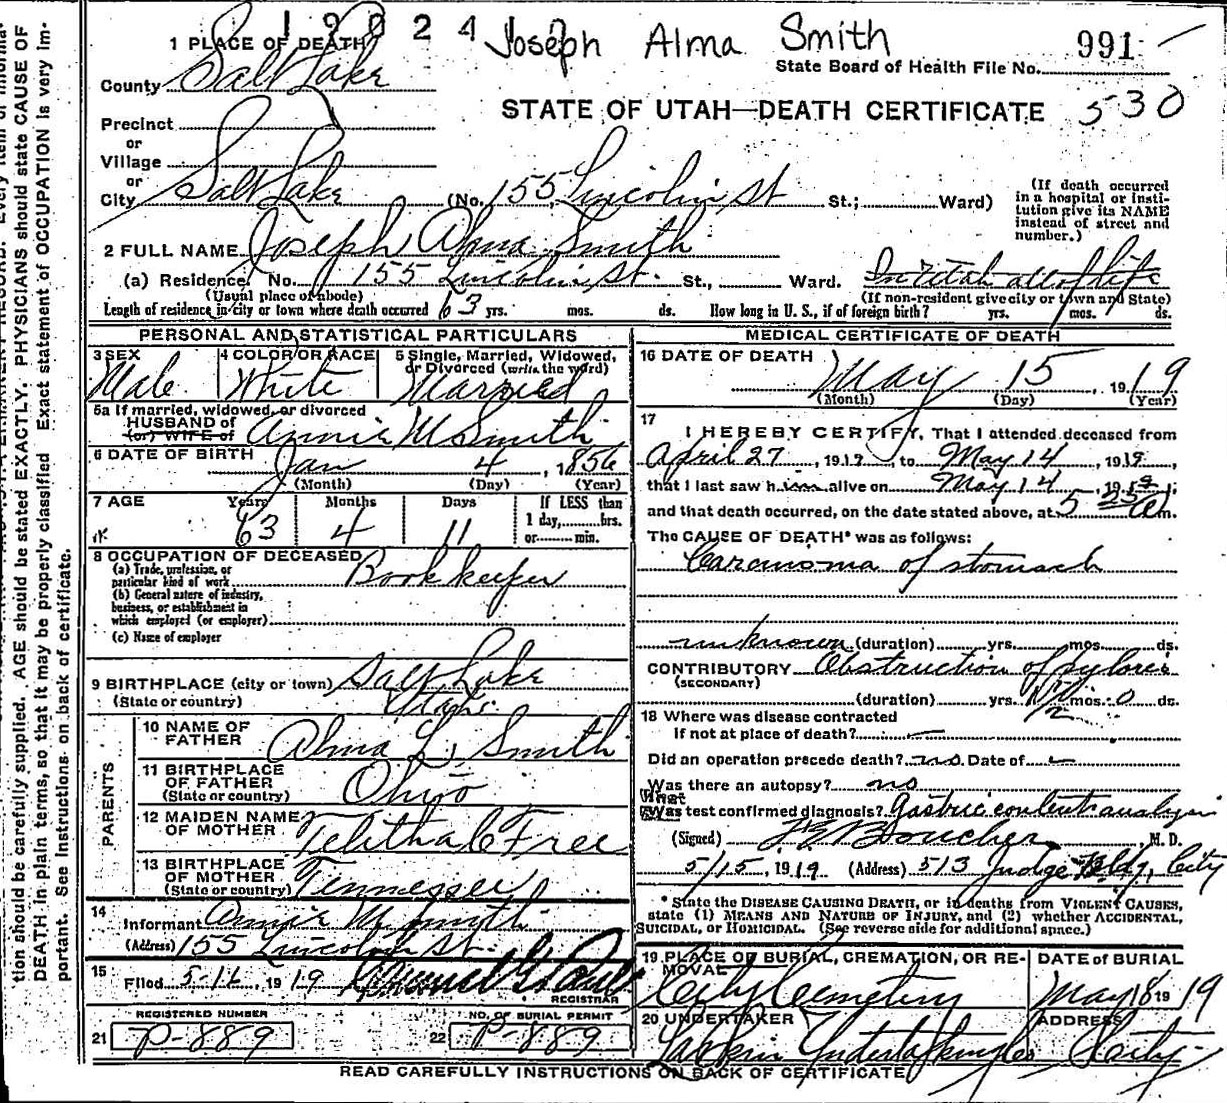 19024
Joseph Alma Smith
991
State Board of Health File No.
530
STATE OF UTAH—DEATH CERTIFICATE
1 PLACE OF DEATH
County Salt Lake
Precinct
or
Village
or
City Salt Lake (No. 155 Lincoln St St.; Ward)
(If death occurred in a hospital or institution give its NAME instead of street and number.)
2 FULL NAME Joseph Alma Smith
(a) Residence No. 155 Lincoln St. St., Ward. In Utah all of life
(Usual place of abode) (If non-resident give city or town and State)
Length of residence in city or town where death occurred 63 yrs. mos. ds. How long in U. S., if of foreign birth? yrs. mos. ds.
PERSONAL AND STATISTICAL PARTICULARS
3 SEX Male
4 COLOR OR RACE White
5 Single, Married, Widowed, or Divorced (write the word) Married
5a If married, widowed, or divorced
HUSBAND of
(or) WIFE of Annie M Smith
6 DATE OF BIRTH Jan 4, 1856
(Month) (Day) (Year)
7 AGE Years 63 Months 4 Days 11
If LESS than
1 day, hrs.
or min.
8 OCCUPATION OF DECEASED
(a) Trade, profession, or particular kind of work Book keeper
(b) General nature of industry, business, or establishment in which employed (or employer)
(c) Name of employer
9 BIRTHPLACE (city or town) Salt Lake
(State or country) Utah
PARENTS
10 NAME OF FATHER Alma L. Smith
11 BIRTHPLACE OF FATHER (State or country) Ohio
12 MAIDEN NAME OF MOTHER Free
13 BIRTHPLACE OF MOTHER (State or country) Tennessee
14 Informant Annie M Smith
(Address) 155 Lincoln St.
15 Filed 5-16, 1919
REGISTRAR
REGISTERED NUMBER
21 P-889
NO. OF BURIAL PERMIT
22 P-889
MEDICAL CERTIFICATE OF DEATH
16 DATE OF DEATH May 15, 1919
(Month) (Day) (Year)
17 I HEREBY CERTIFY, That I attended deceased from
April 27, 1919, to May 14, 1919,
that I last saw him alive on May 14, 1919
and that death occurred, on the date stated above, at 5 25 a m.
The CAUSE OF DEATH* was as follows:
Carcinoma of stomach
unknown (duration) yrs. mos. ds.
CONTRIBUTORY Obstruction of pylorus
(SECONDARY)
(duration) yrs. 1 1/2 mos. 0 ds.
18 Where was disease contracted
If not at place of death?
Did an operation precede death? no. Date of
Was there an autopsy? no
What test confirmed diagnosis? Gastric content analysis
(Signed) Boucher M. D.
5/15, 1919 (Address) 513 Judge Bldg, City
* State the DISEASE CAUSING DEATH, or in deaths from VIOLENT CAUSES, state (1) MEANS AND NATURE OF INJURY, and (2) whether ACCIDENTAL, SUICIDAL, or HOMICIDAL. (See reverse side for additional space.)
19 PLACE OF BURIAL, CREMATION, OR REMOVAL City Cemetery
DATE of BURIAL May 18 1919
20 UNDERTAKER Larkin Undertaking Co
ADDRESS City
READ CAREFULLY INSTRUCTIONS ON BACK OF CERTIFICATE
tion should be carefully supplied. AGE should be stated EXACTLY. PHYSICIANS should state CAUSE OF
DEATH in plain terms, so that it may be properly classified. Exact statement of OCCUPATION is very im-
portant. See Instructions on back of certificate.